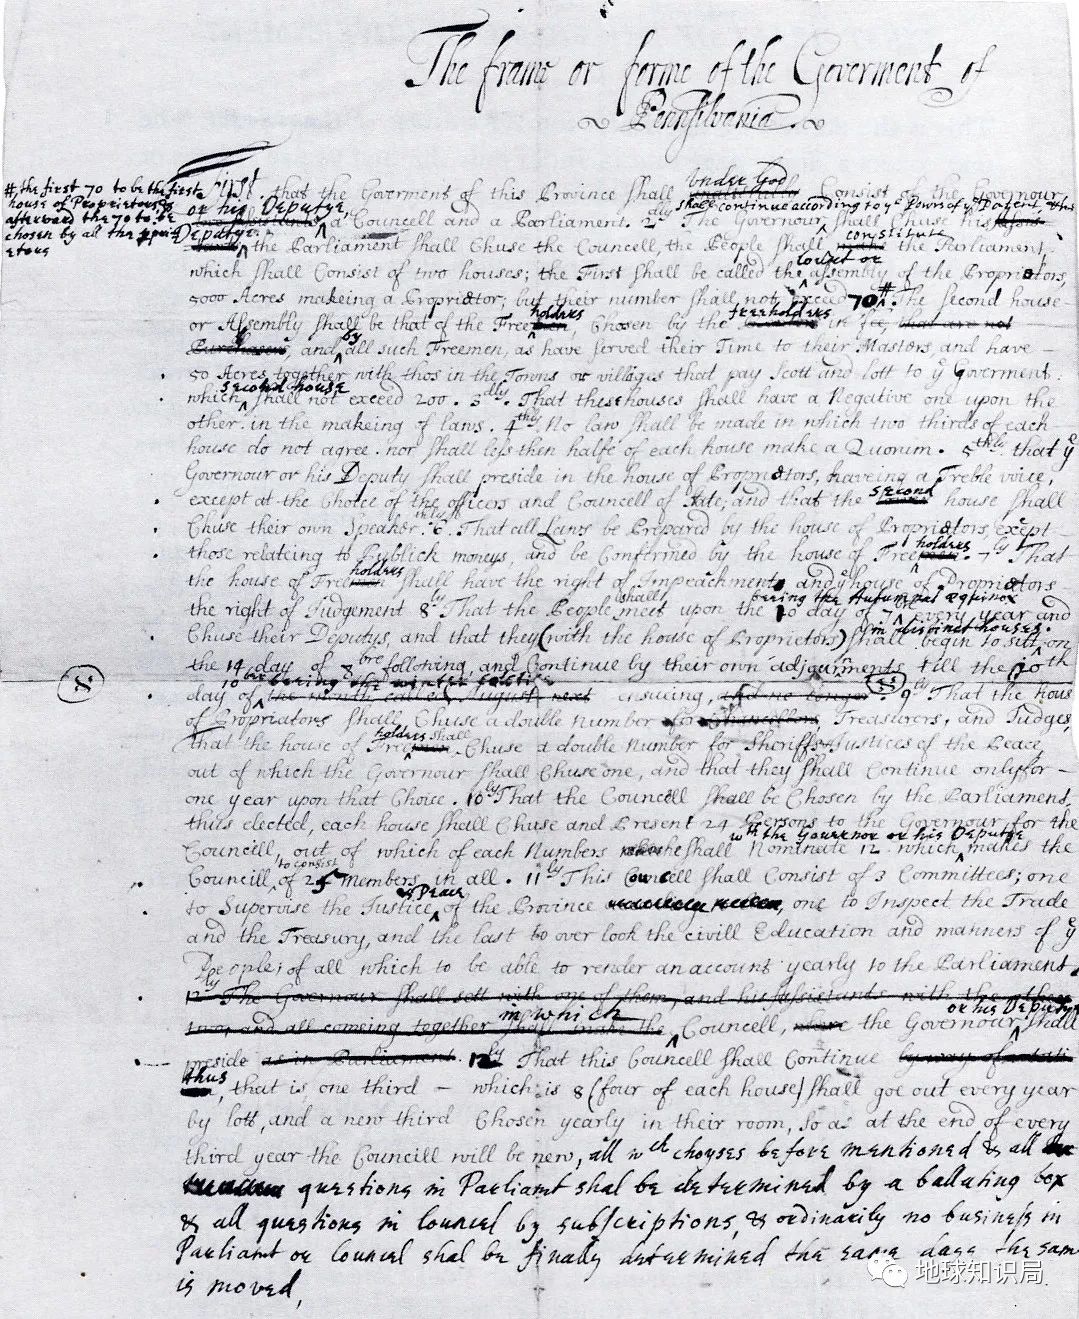 The frame or forme of the Goverment of
Pennsilvania.
# the first 70 to be the first
house of Proprietours &
afterward the 70 to be
chosen by all the
etors
First. that the Goverment of this Province Shall Under God Consist of the Governour
or his Deputye, a Councell and a Parliament. 2dly The Governour Shall Chuse his
shall continue according to ye
Deputye. the Parliament Shall Chuse the Councell, the People Shall constitute the Parliament,
which Shall Consist of two houses; the First Shall be called the assembly of the Propriators,
5000 Acres makeing a Propriator; but their number Shall not exceed 70 # The Second house
or Assembly Shall be that of the Freeholders, Chosen by the freeholders in fee, that are not
and by all such Freemen, as have served their Time to their Masters, and have
50 Acres, together with thos in the Towns or villages that pay Scott and lott to ye Goverment.
which second house shall not exceed 200. 3dly That these houses shall have a Negative one upon the
other in the makeing of laws. 4thly No law Shall be made in which two thirds of each
house do not agree. nor Shall less then halfe of each house make a Quorum. 5thly that ye
Governour or his Deputy Shall preside in the house of Propriators, haveing a Treble voice,
except at the Choice of the officers and Councell of State, and that the second house Shall
Chuse their own Speaker. 6thly That all Laws be Prepared by the house of Propriators, exept
those relateing to Publick moneys and be Confirmed by the house of Freeholders. 7ly That
the house of Freeholders Shall have the right of Impeachment, and ye house of Propriators
the right of Judgement 8ly That the People shall meet upon the 10 day of 7 every year and
being the Autumnal Equinox
Chuse their Deputys, and that they (with the house of Proprietors) shall begin to sitt on
in distinct houses.
the 14 day of 8bre following and Continue by their own adjournments till the 10th
day of 10 being the winter ensuing, 9ly That the hous
of Propriators Shall Chuse a double number for Treasurers, and Judges,
that the house of Freeholders shall Chuse a double Number for Sheriffs & Justices of the Peace
out of which the Governour Shall Chuse one, and that they Shall Continue only for
one year upon that Choice. 10ly That the Councell Shall be Chosen by the Parliament,
thus elected, each house Shall Chuse and Present 24 Persons to the Governour for the
Councill, out of which of each Numbers he Shall Nominate 12. which wth the Governor or his Deputye makes the
Councill to consist of 25 members in all. 11ly This Councell Shall Consist of 3 Committees; one
to Supervise the Justice & Peace of the Province, one to Inspect the Trade
and the Treasury, and the last to over look the civill Education and manners of ye
People; of all which to be able to render an account yearly to the Parliament
12ly The Governour Shall sett with one of them, and his Assistants with the other
two, and all comeing together shall make the in which Councell, the Governour or his Deputy shall
preside as in Parliament. 12ly That this Councell Shall Continue
thus, that is, one third – which is 8 (four of each house) Shall goe out every year
by lott, and a new third Chosen yearly in their room, So as at the end of every
third year the Councill will be new, all wch choyses before mentioned & all
questions in Parliamt shal be determined by a ballating box
& all questions in Councel by subscriptions, & ordinarily no business in
Parliamt or Councel shal be finally determined the same daye the same
is moved,
地球知识局